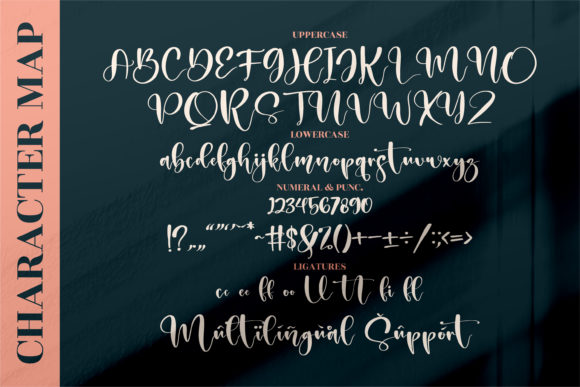 CHARACTER MAP
UPPERCASE
ABCDEFGHIJKLMNO
PQRSTUVWXYZ
LOWERCASE
abcdefghijklmnopqrstuvwxyz
NUMERAL & PUNC.
1234567890
!?,.„“”‘’~* ~#$&%()+−±÷/:;<=>
LIGATURES
ce ee ff oo U tt fi fl
Multilingual Šûppórt